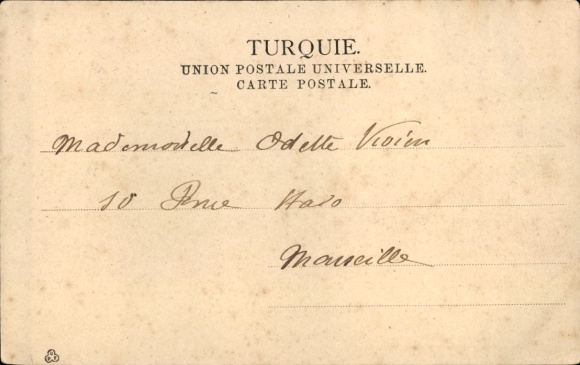 TURQUIE.
UNION POSTALE UNIVERSELLE.
CARTE POSTALE.
Mademoiselle Odette Vivien
10 Rue Haxo
Marseille